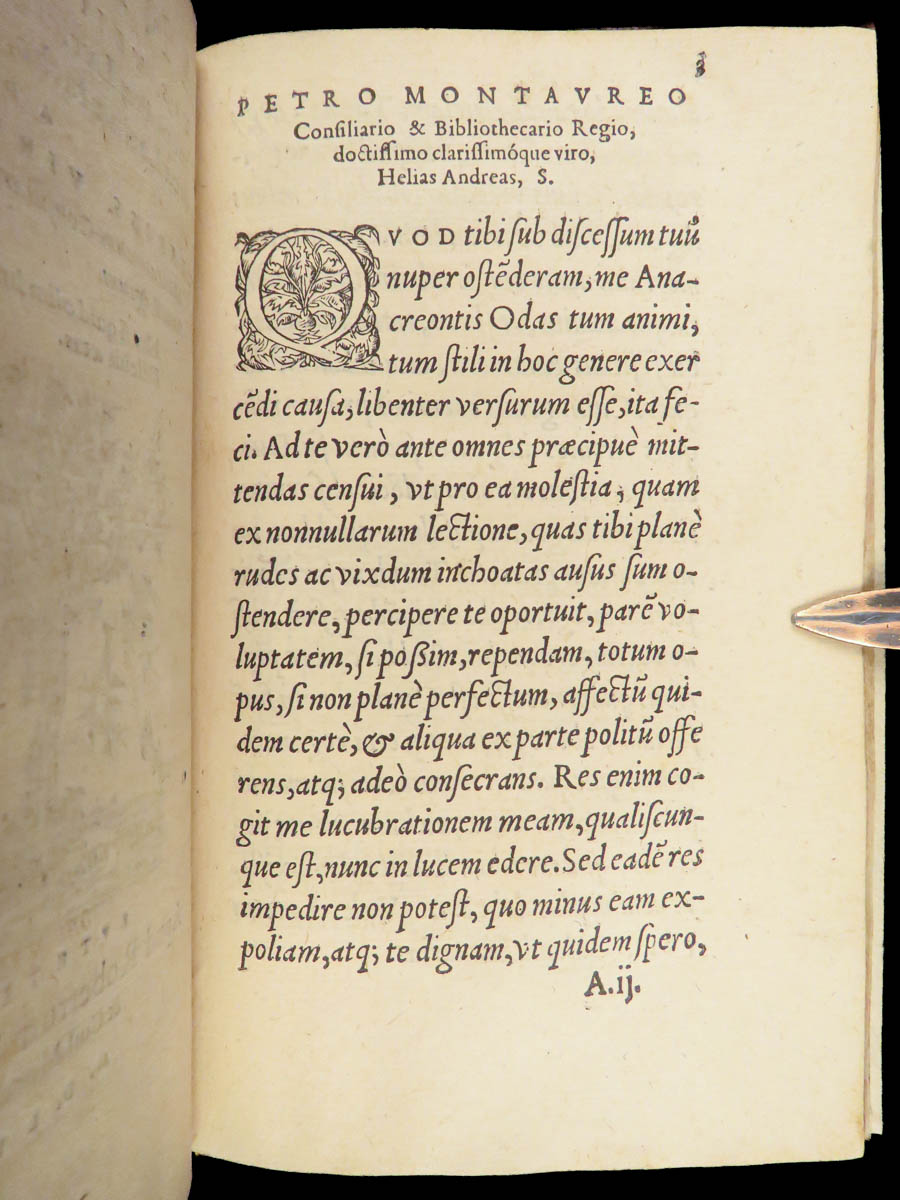 3
PETRO MONTAVREO
Conſiliario & Bibliothecario Regio,
doctiſſimo clariſſimóque viro,
Helias Andreas, S.
QVOD tibi ſub diſceſſum tuū
nuper oſtēderam, me Ana-
creontis Odas tum animi,
tum ſtili in hoc genere exer
cēdi cauſa, libenter verſurum eſſe, ita fe-
ci. Ad te verò ante omnes præcipuè mit-
tendas cenſui, vt pro ea moleſtia, quam
ex nonnullarum lectione, quas tibi planè
rudes ac vixdum inchoatas auſus ſum o-
ſtendere, percipere te oportuit, parē vo-
luptatem, ſi poßim, rependam, totum o-
pus, ſi non planè perfectum, affectū qui-
dem certè, & aliqua ex parte politū offe
rens, atq; adeò conſecrans. Res enim co-
git me lucubrationem meam, qualiſcun-
que eſt, nunc in lucem edere. Sed eadē res
impedire non poteſt, quo minus eam ex-
poliam, atq; te dignam, vt quidem ſpero,
A.ij.